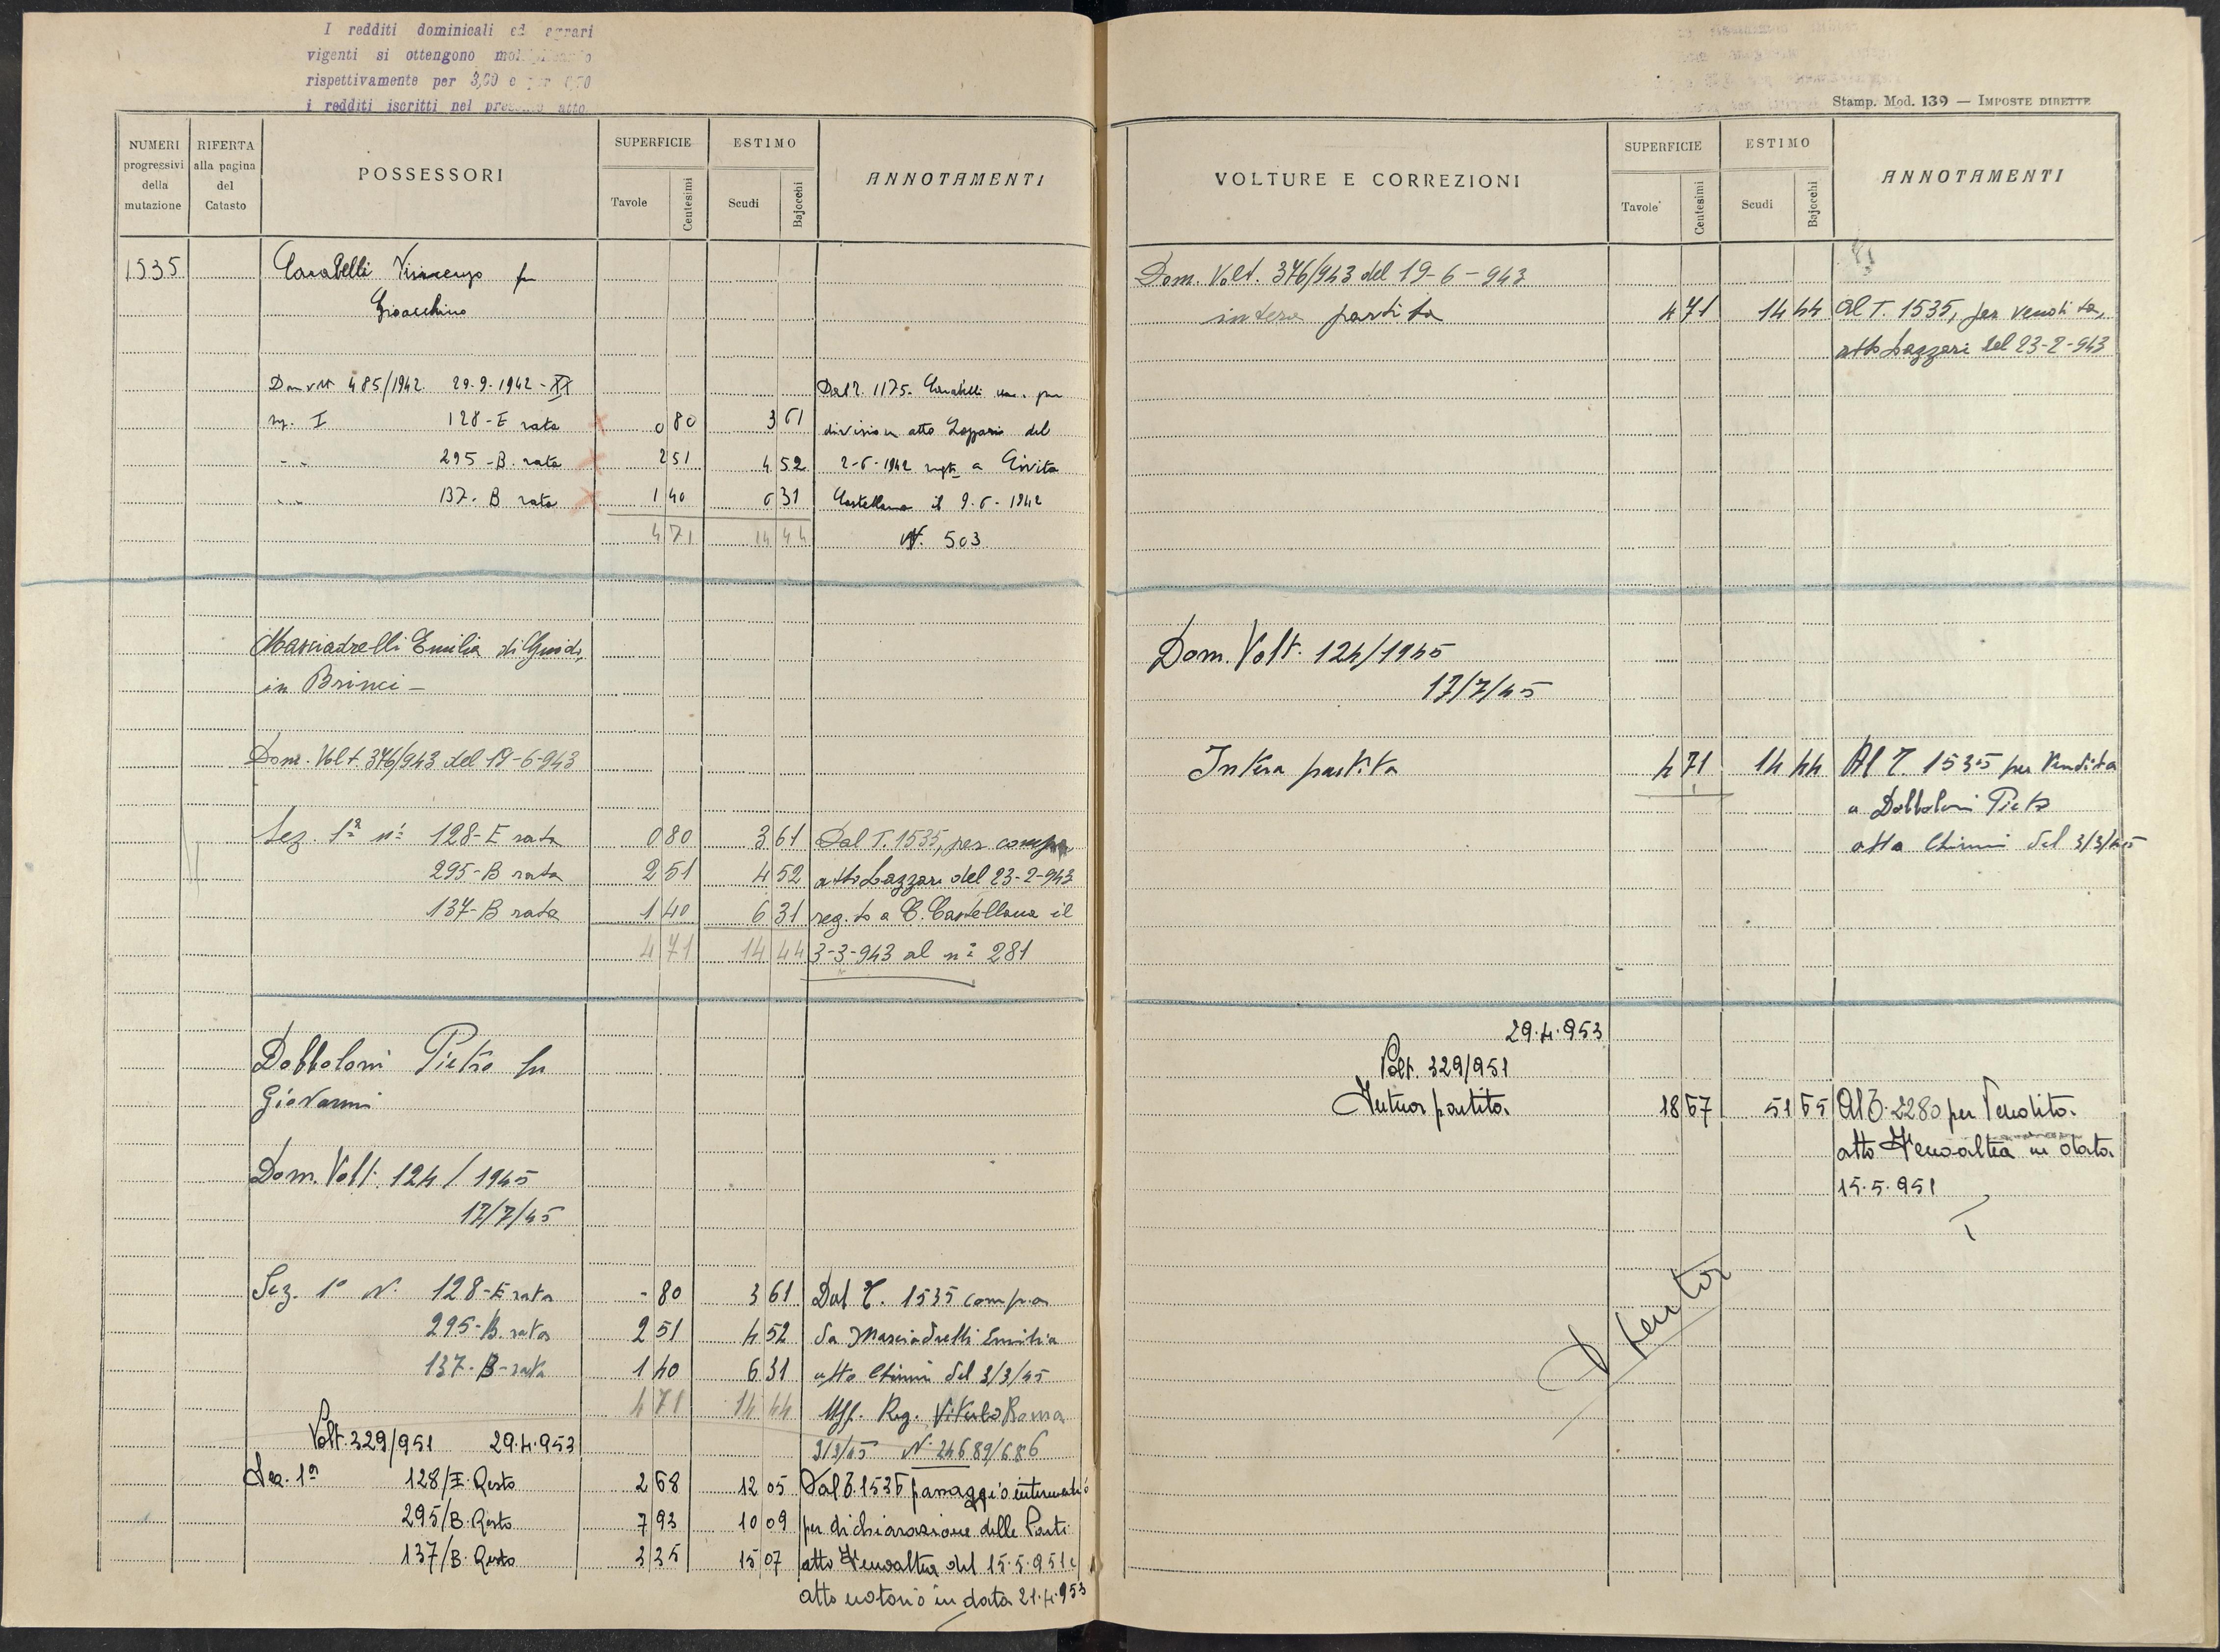 I redditi dominicali ed agrari
vigenti si ottengono
rispettivamente per 3,00 e per
i redditi iscritti nel presente atto.
NUMERI progressivi della mutazione
RIFERTA alla pagina del Catasto
POSSESSORI
SUPERFICIE
Tavole
Centesimi
ESTIMO
Scudi
Bajocchi
ANNOTAMENTI
1535 Carabelli Vincenzo fu
Gioacchino
Dom volt 485/1942 29-9-1942-XX
Dal T. 1175. Carabelli per
sez. I 128-E rata 0 80 3 61 division atto Lazzari del
" " 295-B. rata 2 51 4 52 2-6-1942 regto a Civita
" " 137-B rata 1 40 6 31 Castellana il 9-6-1942
4 71 14 44 N. 503
Masciadrelli Emilia di Guido,
in Brinci -
Dom. Volt. 376/943 del 19-6-943
Sez. 1ª nⁱ 128-E rata 0 80 3 61 Dal T. 1535, per compra
295-B rata 2 51 4 52 atto Lazzari del 23-2-943
137-B rata 1 40 6 31 reg.to a C. Castellana il
4 71 14 44 3-3-943 al n° 281
Dobboloni Pietro fu
Giovanni
Dom. Volt. 124/1945
17/7/45
Sez. 1ª N. 128-E rata - 80 3 61 Dal T. 1535 compra
295-B. rata 2 51 4 52 da Masciadrelli Emilia
137-B-rata 1 40 6 31 atto Chimni del 3/3/45
4 71 14 44 Uff. Reg. Viterbo Roma
Volt. 329/951 29.4.953 3/3/45 N. 24689/686
Sez. 1ª 128/E. Resto 2 68 12 05 Dal T. 1536 passaggio intermedio
295/B. Resto 7 93 10 09 per dichiarazione delle Parti
137/B. Resto 3 35 15 07 atto del 15.5.951 e
atto notorio in data 21.4.953
Stamp. Mod. 139 — IMPOSTE DIRETTE
VOLTURE E CORREZIONI
SUPERFICIE
Tavole
Centesimi
ESTIMO
Scudi
Bajocchi
ANNOTAMENTI
Dom. Volt. 376/943 del 19-6-943
intera partita 4 71 14 44 Al T. 1535, per vendita,
atto Lazzari del 23-2-943
Dom. Volt. 124/1945
17/7/45
Intera partita 4 71 14 44 Al T. 1535 per Vendita
a Dobboloni Pietro
atto Chimni del 3/3/45
29.4.953
Volt. 329/951
Intera partita 18 67 51 65 Al T. 2280 per Vendita.
atto in data
15.5.951